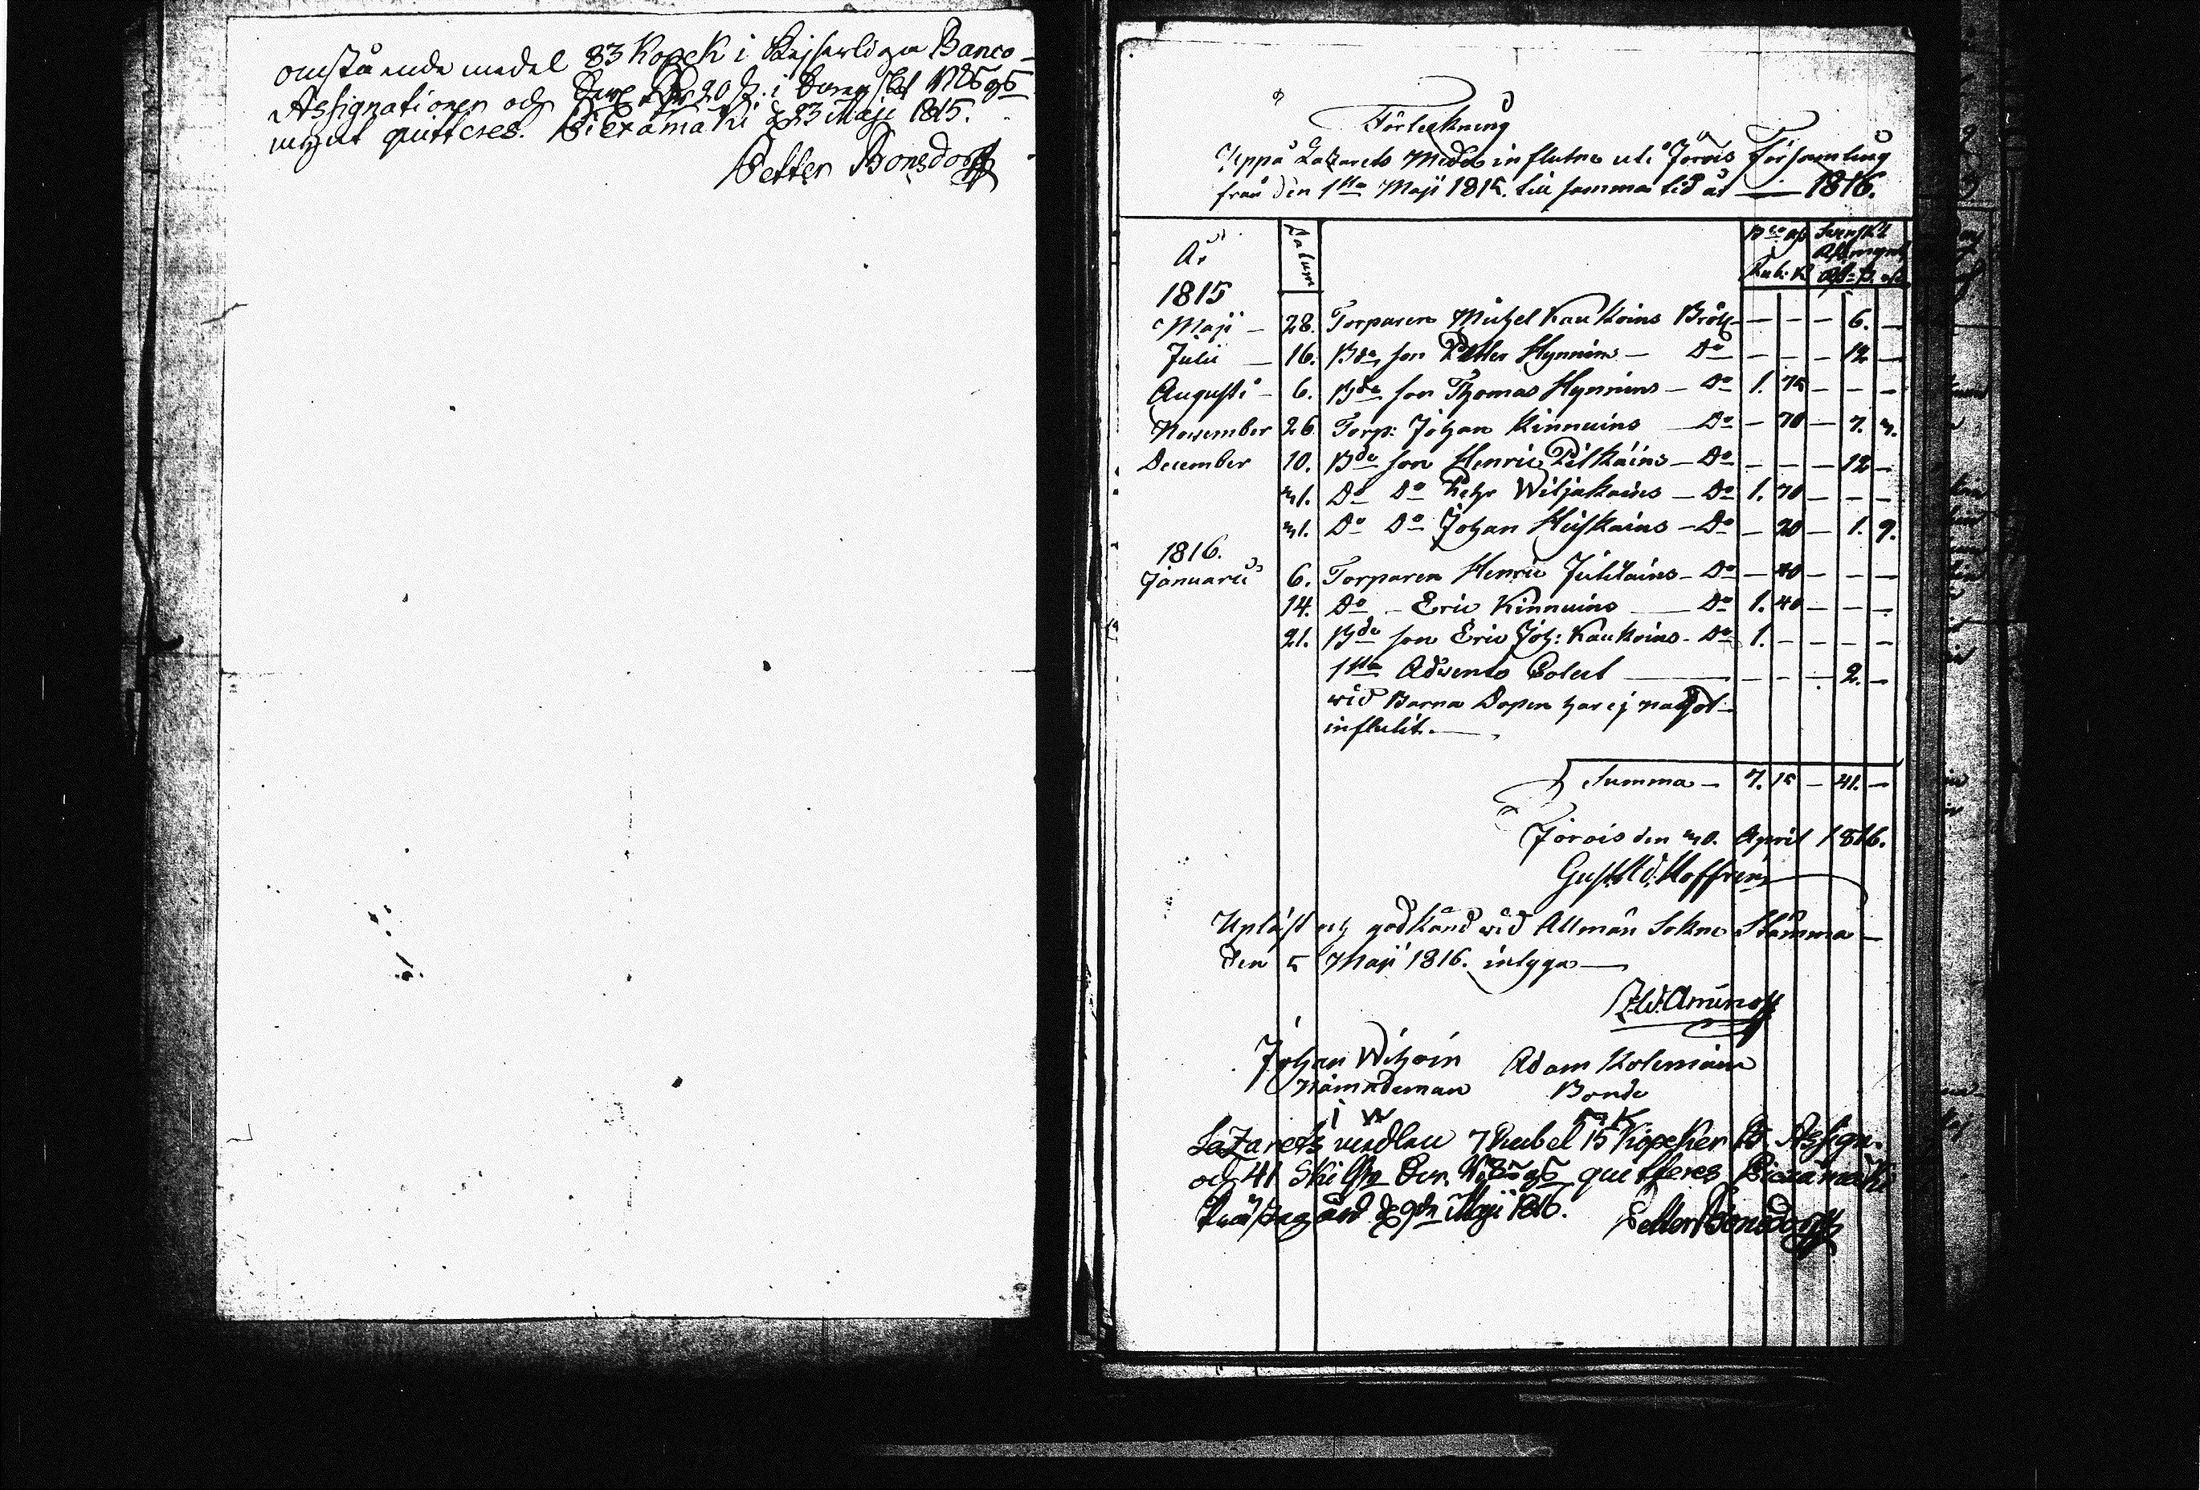 omstående medel 83 Kopek i Kejserliga Banco-
Assignationer och
quitteres. Piexämäki d 23 Maji 1815.
Petter Bonsdorff
Förteckning
Uppå Lazarets Medel influtne uti Jorois Församling
från den 1sta Maji 1815. till samma tid år — 1816.
År Datum Bco Ass Svenskt
Rub: K
1815
Maji — 28. Torparen Michel Kaukoins Bröll — — — 6. —
Julii — 16. Bde son Petter Hynnins — Do — — — 12 —
Augusti — 6. Bde son Thomas Hynnins — Do 1. 75 — — —
November 26 Torp: Johan Kinnuins — Do — 70 — 7. 3.
December 10. Bde son Henric Pitkäins — Do — — — 12 —
31. Do Do Petr Wiljakains — Do 1. 70 — — —
31. Do Do Johan Huskains — Do — 20 — 1. 9.
1816.
Januarii 6. Torparen Henric Julitains — Do — 40 — — —
14. Do — Eric Kinnuins — Do 1. 40 — — —
21. Bde son Eric Joh: Kaukoins — Do 1. — — — —
1sta Advents — — — 2. —
wid Barna Dopen har ej något
influtit. —
Summa — 7. 15 — 41. —
Jorois den 30. April 1816.
Gust. Ad. Hoffrén
Upläst och godkänd wid Allmän Sokne Stämma —
den 5 Maji 1816. intyga —
Aminoff
Johan Wihoin Adam Kolemain
Nämndeman Bonde
I W
Lazarets medlen 7 Rubel 15 Kopeker B. Assign.
och 41 Skill. quitteres Piexämäki
Prästegård d 9de Maji 1816. Petter Bonsdorff